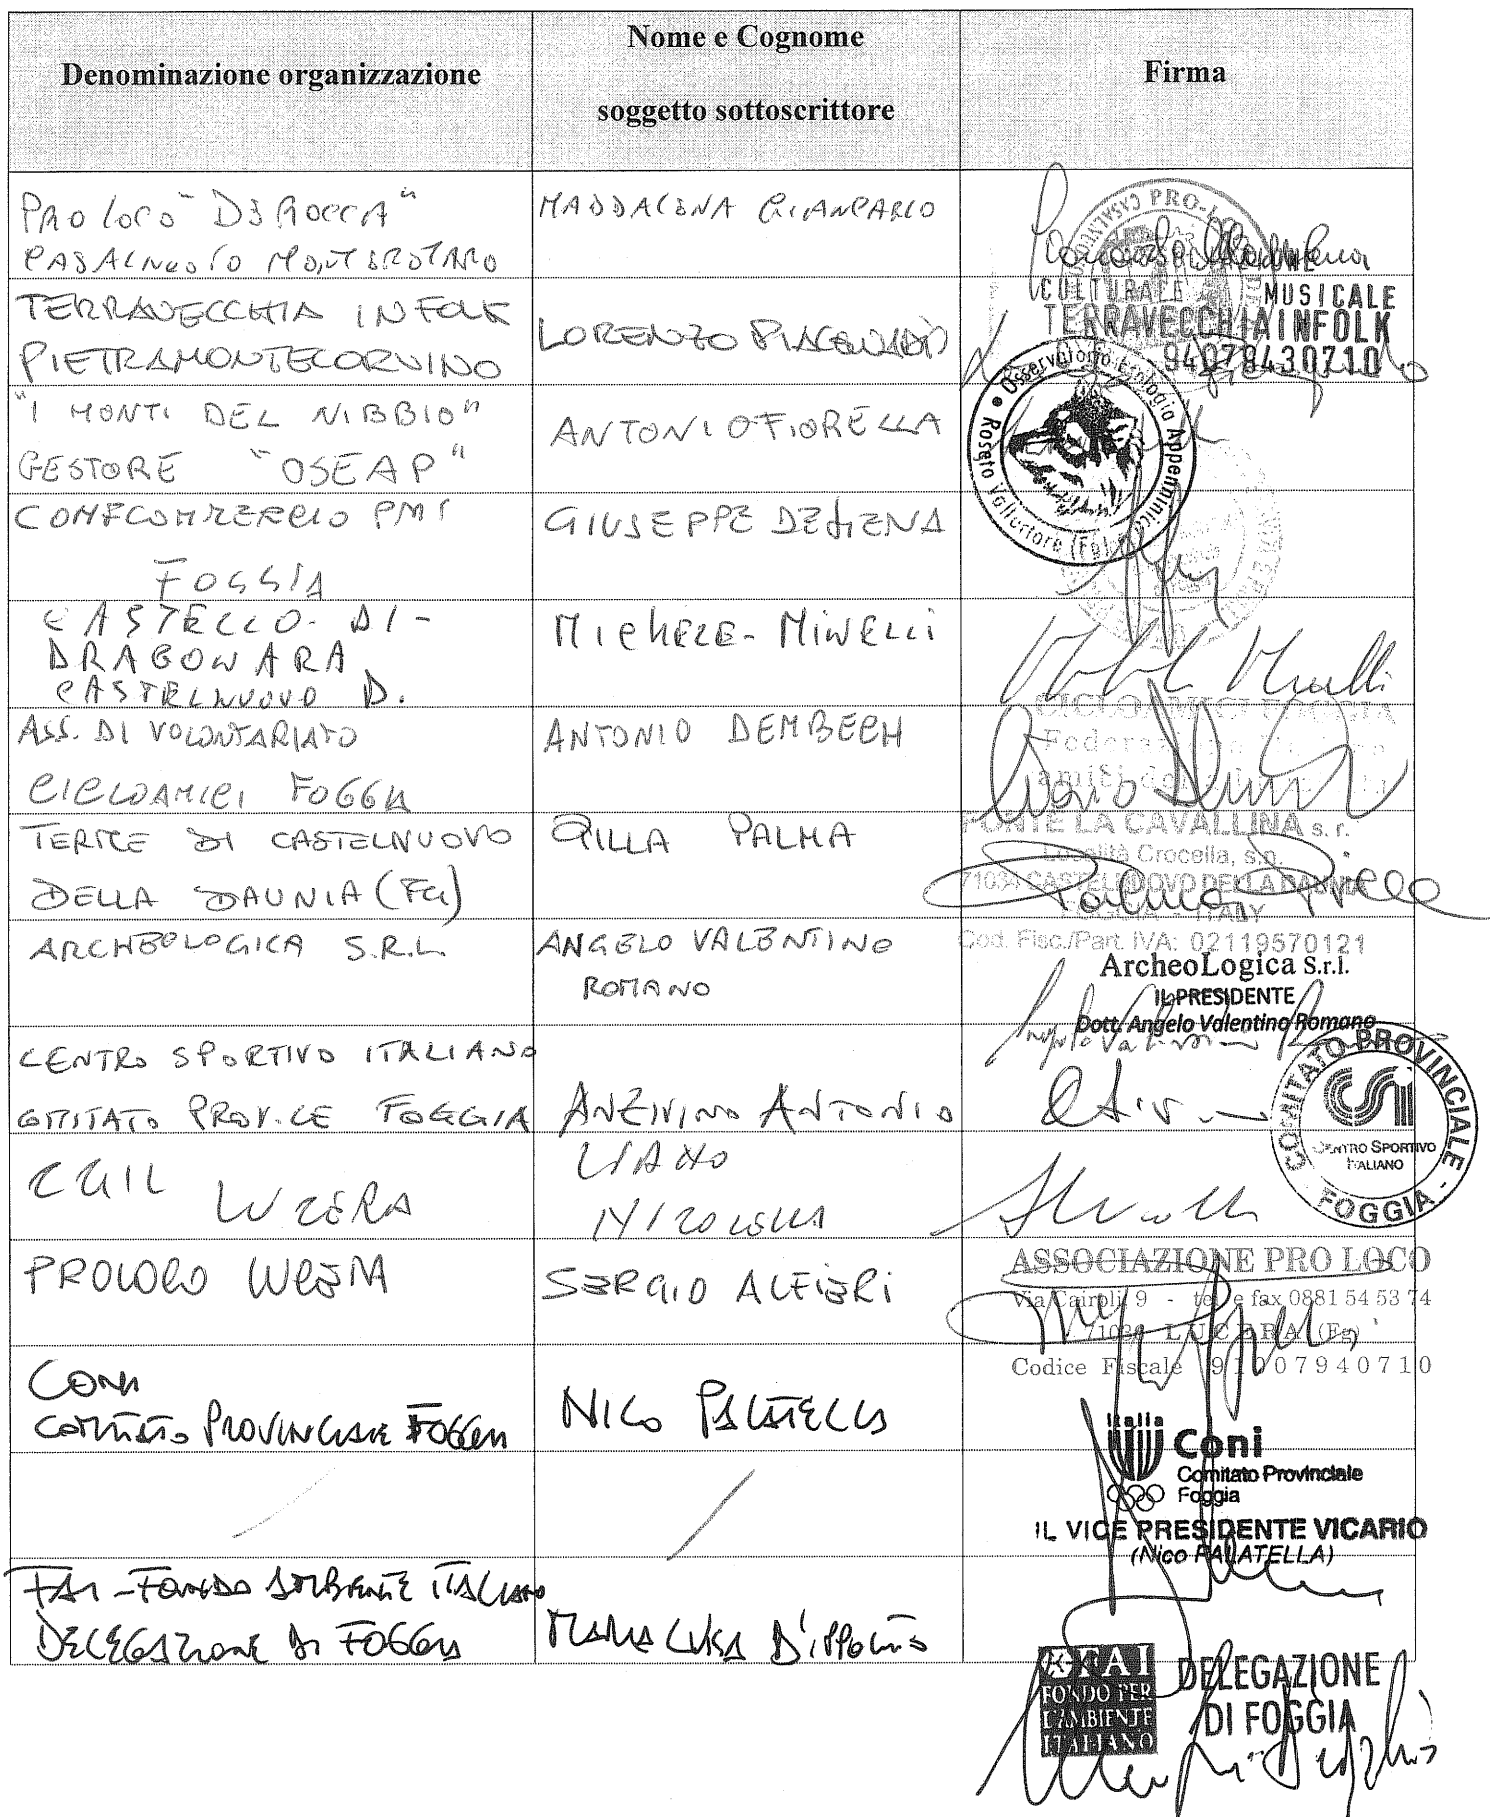 Denominazione organizzazione
Nome e Cognome
soggetto sottoscrittore
Firma
PRO LOCO "DE ROCCA"
CASALNUOVO MONTEROTARO
MADDALENA GIANCARLO
PRO-LO
TERRAVECCHIA IN FOLK
PIETRAMONTECORVINO
LORENZO PIACQUADIO
CULTURALE MUSICALE
TERRAVECCHIAINFOLK
94078430710
"I MONTI DEL NIBBIO"
GESTORE "OSEAP"
ANTONIO FIORELLA
Osservatorio Ecologia Appenninica
Roseto Valfortore (Fg)
CONFCOMMERCIO PMI
FOGGIA
GIUSEPPE DEFIENA
CASTELLO - DI -
DRAGONARA
CASTELNUOVO D.
MICHELE - MINELLI
ASS. DI VOLONTARIATO
CICLOAMICI FOGGIA
ANTONIO DEMBECH
CICLOAMICI FOGGIA
TERME DI CASTELNUOVO
DELLA DAUNIA (FG)
GILLA PALMA
FONTE LA CAVALLINA s. r.
Località Crocella, s.n.
71034 CASTELNUOVO DELLA DAUNIA
FOGGIA - ITALY
Cod. Fisc./Part. IVA: 02119570121
ARCHEOLOGICA S.R.L.
ANGELO VALENTINO
ROMANO
ArcheoLogica S.r.l.
IL PRESIDENTE
Dott. Angelo Valentino Romano
CENTRO SPORTIVO ITALIANO
COMITATO PROV.LE FOGGIA
ANZIVINO ANTONIO
COMITATO PROVINCIALE
CSI
CENTRO SPORTIVO
ITALIANO
- FOGGIA -
CGIL LUCERA
LIANO
NICOLELLA
PROLOCO LUCERA
SERGIO ALFIERI
ASSOCIAZIONE PRO LOCO
Via Cairoli, 9 - tel. e fax 0881 54 53 74
71036 LUCERA (Fg)
Codice Fiscale 91007940710
CONI
COMITATO PROVINCIALE FOGGIA
NICO PALATELLA
Italia
Coni
Comitato Provinciale
Foggia
IL VICE PRESIDENTE VICARIO
(Nico PALATELLA)
FAI - FONDO AMBIENTE ITALIANO
DELEGAZIONE DI FOGGIA
MARIA LUISA D'IPPOLITO
FAI
FONDO PER
L'AMBIENTE
ITALIANO
DELEGAZIONE
DI FOGGIA